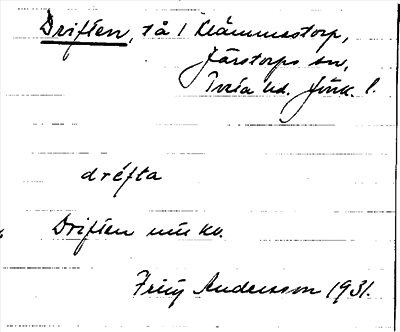 Driften, tå i Klämmestorp,
Järstorps sn,
Tveta hd. Jönk. l.
dréfta
Driften uu. kv.
Andersson 1931.